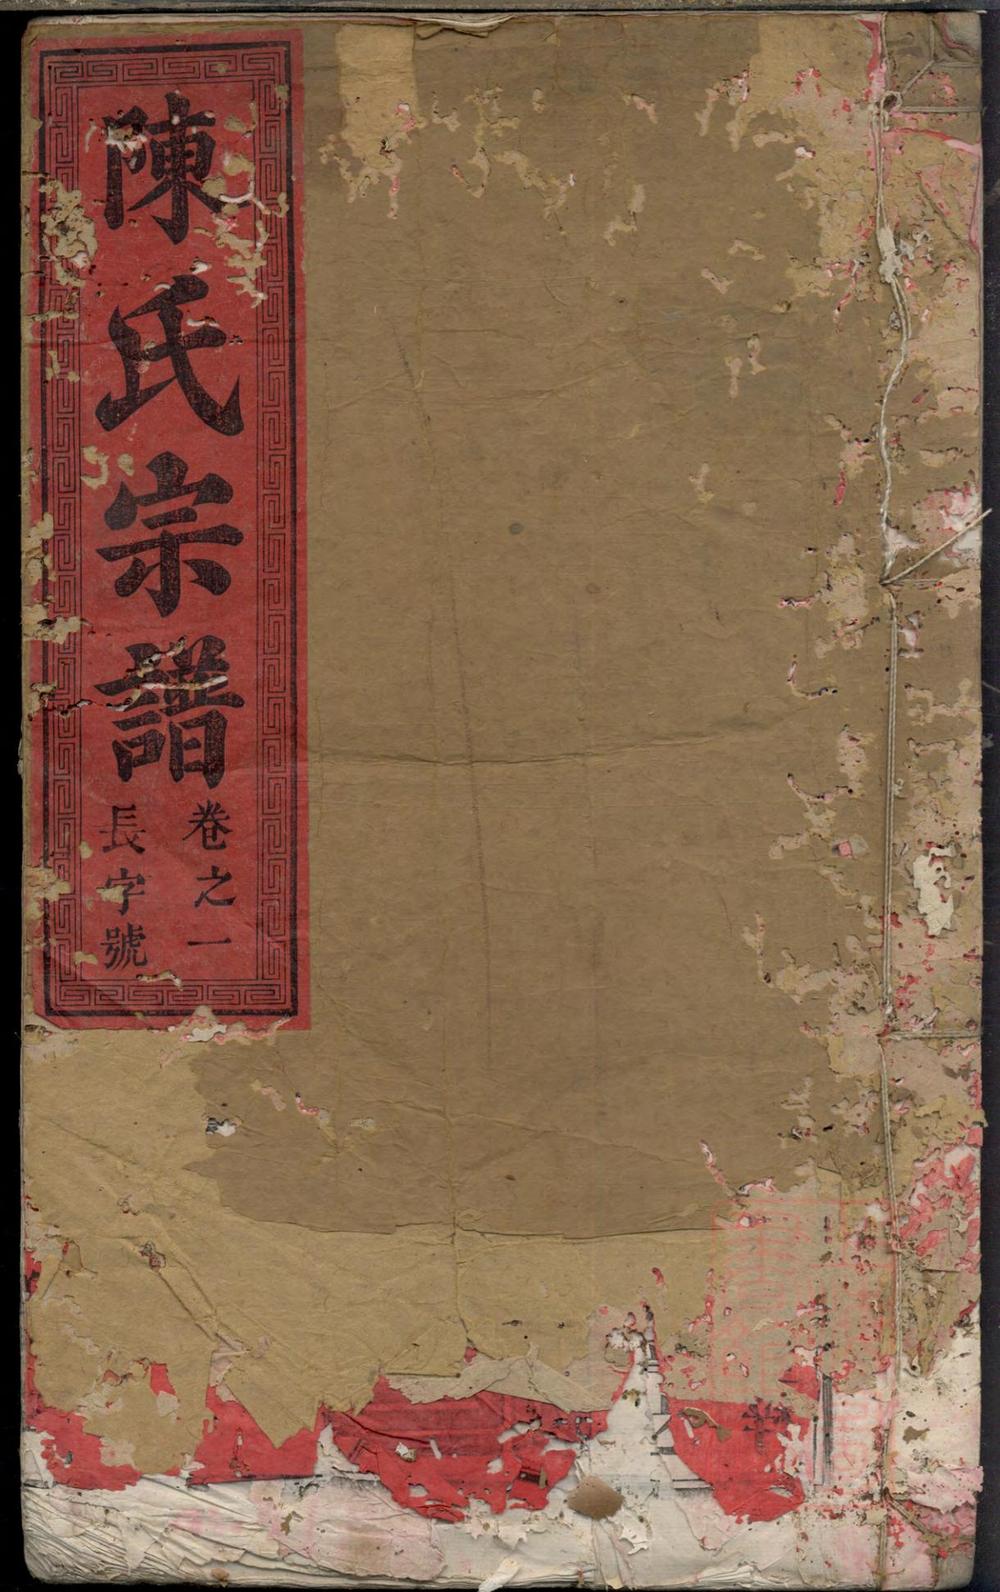 陳氏宗譜
卷之一
長字號